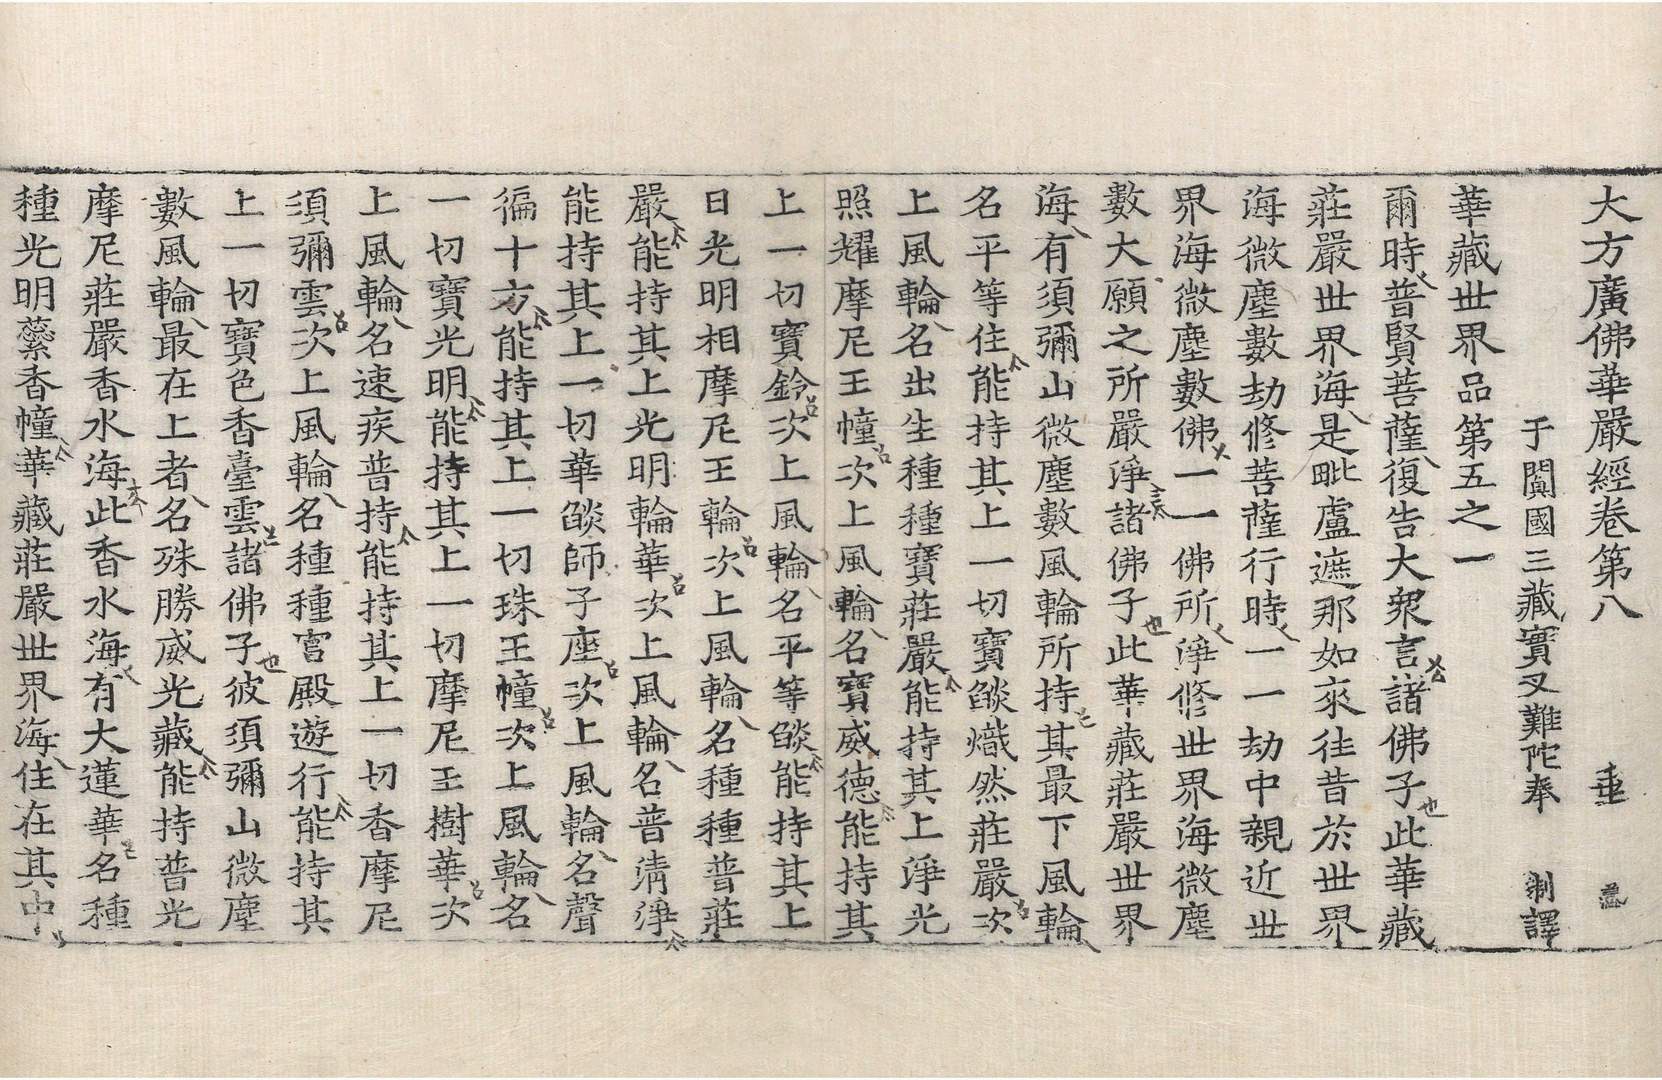 大方廣佛華嚴經卷第八 垂
于闐國三藏實叉難陀奉 制譯
華藏世界品第五之一
爾時普賢菩薩復告大衆言諸佛子此華藏
莊嚴世界海是毗盧遮那如來往昔於世界
海微塵數劫修菩薩行時一一劫中親近世
界海微塵數佛一一佛所淨修世界海微塵
數大願之所嚴淨諸佛子此華藏莊嚴世界
海有須彌山微塵數風輪所持其最下風輪
名平等住能持其上一切寶燄熾然莊嚴次
上風輪名出生種種寶莊嚴能持其上淨光
照耀摩尼王幢次上風輪名寶威德能持其
上一切寶鈴次上風輪名平等燄能持其上
日光明相摩尼王輪次上風輪名種種普莊
嚴能持其上光明輪華次上風輪名普淸淨
能持其上一切華燄師子座次上風輪名聲
徧十方能持其上一切珠王幢次上風輪名
一切寶光明能持其上一切摩尼王樹華次
上風輪名速疾普持能持其上一切香摩尼
須彌雲次上風輪名種種宮殿遊行能持其
上一切寶色香臺雲諸佛子彼須彌山微塵
數風輪最在上者名殊勝威光藏能持普光
摩尼莊嚴香水海此香水海有大蓮華名種
種光明蘂香幢華藏莊嚴世界海住在其中